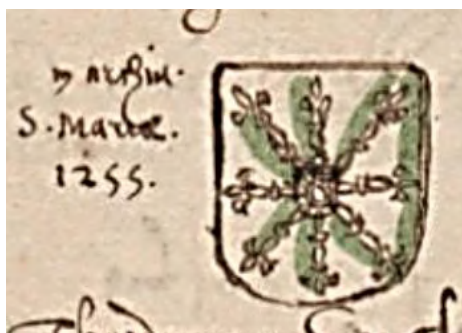 in archiu.
S. Mariæ.
1255.